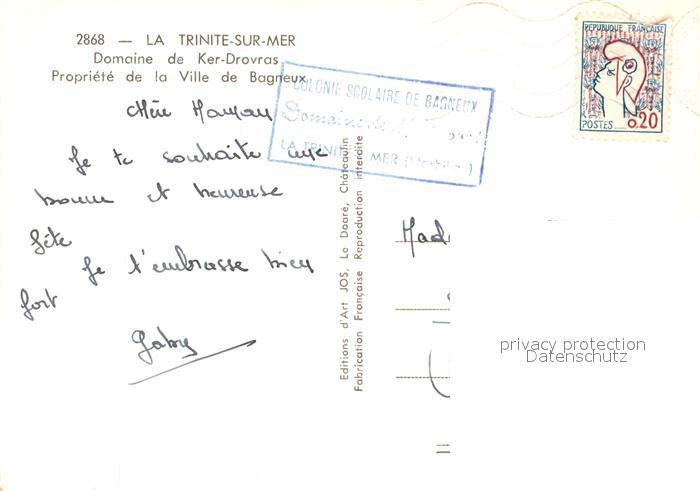 2868 — LA TRINITE-SUR-MER
Domaine de Ker-Drovras
Propriété de la Ville de Bagneux
COLONIE SCOLAIRE DE BAGNEUX
Domaine de
LA TRINITE MER
REPUBLIQUE FRANÇAISE
POSTES 0,20
Chère Maman
Je te souhaite une
bonne et heureuse
fête
Je t'embrasse bien
fort
Gaby
Editions d'Art JOS, Le Doaré, Châteaulin
Fabrication Française Reproduction interdite
Mad
privacy protection
Datenschutz